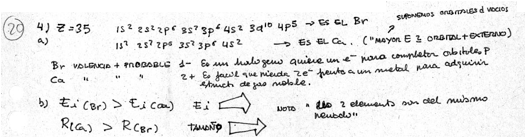 20
4) Z=35 1s² 2s² 2p⁶ 3s² 3p⁶ 4s² 3d¹⁰ 4p⁵ → ES EL Br SUPONEMOS ORBITALES d VACIOS
a) 1s² 2s² 2p⁶ 3s² 3p⁶ 4s² → ES EL Ca. ("MAYOR E ES ORBITAL + EXTERNO)
Br VALENCIA + PROBABLE 1- Es un halogeno quiere un e⁻ para completar orbitales P
Ca " " " 2+ Es facil que pierda 2e⁻ frente a un metal para adquirir
struct de gas noble.
b) Ei(Br) > Ei(Ca) Ei NOTA " 2 elementos son del mismo
R(Ca) > R(Br) TAMAÑO periodo"